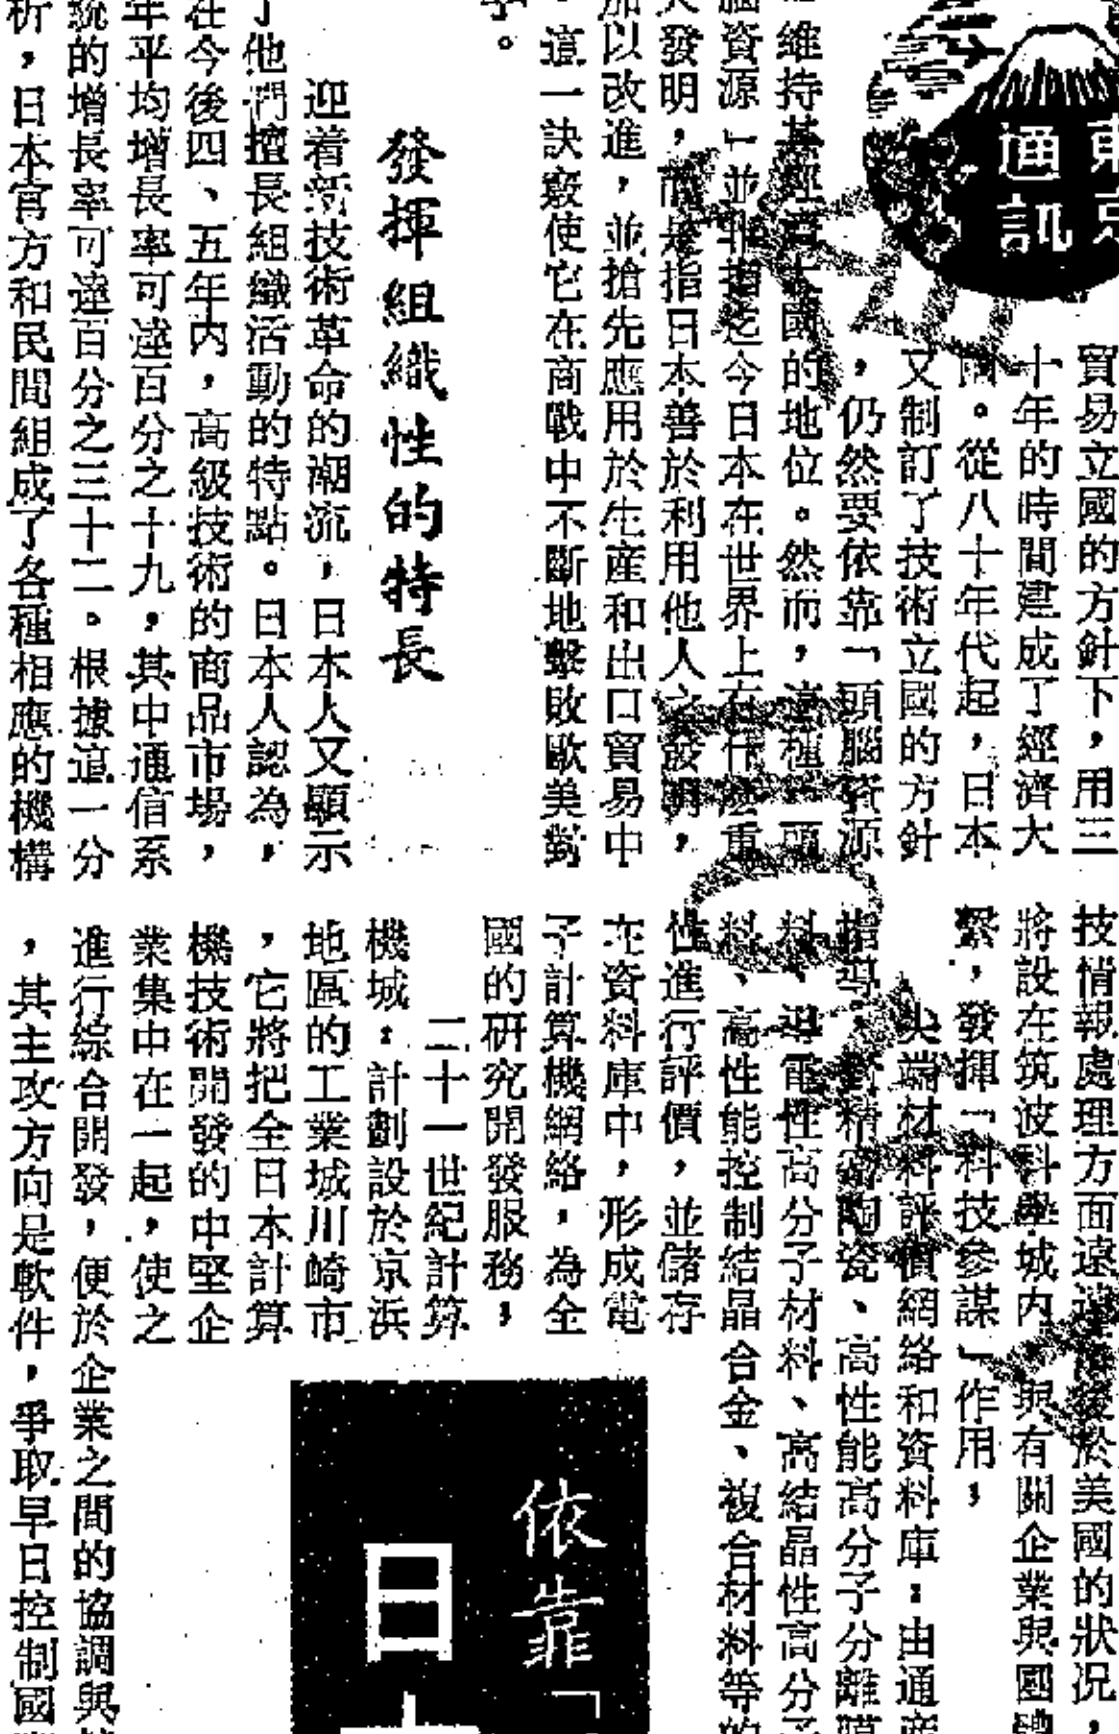 東京
通訊
貿易立國的方針下，用三
十年的時間建成了經濟大
。從八十年代起，日本
又制訂了技術立國的方針
，仍然要依靠「頭腦資源
維持其經濟大國的地位。然而，這種「頭
腦資源」並非指迄今日本在世界上有什麼重
大發明，而是指日本善於利用他人之發明，
加以改進，並搶先應用於生產和出口貿易中
。這一訣竅使它在商戰中不斷地擊敗歐美對
手。
發揮組織性的特長
迎着新技術革命的潮流，日本人又顯示
了他們擅長組織活動的特點。日本人認為，
在今後四、五年内，高級技術的商品市場，
年平均增長率可達百分之十九，其中通信系
統的增長率可達百分之三十二。根據這一分
析，日本官方和民間組成了各種相應的機構
技情報處理方面遠遠落後於美國的狀况，
將設在筑波科學城内，與有關企業與團體
繫，發揮「科技參謀」作用，
尖端材料評價網絡和資料庫：由通產
指導，對精密陶瓷、高性能高分子分離膜
料、導電性高分子材料、高結晶性高分子
料、高性能控制結晶合金、複合材料等的
性進行評價，並儲存
在資料庫中，形成電
子計算機網絡，為全
國的研究開發服務，
二十一世紀計算
機城：計劃設於京浜
地區的工業城川崎市
，它將把全日本計算
機技術開發的中堅企
業集中在一起，使之
進行綜合開發，便於企業之間的協調與
，其主攻方向是軟件，爭取早日控制國
依靠「
日